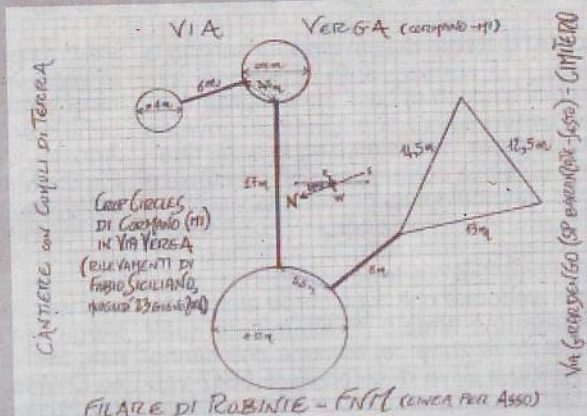 VIA VERGA (CORMANO-MI)
CANTIERE con CUMULI DI TERRA
6m
17m
14,5m
12,5m
13m
8m
N
S
W
CROP CIRCLES
DI CORMANO (MI)
IN VIA VERGA
(RILEVAMENTI DI
FABIO SICILIANO,
VIA GIRARDENGO (SP BARANZATE-SESTO) - CIMITERO
FILARE DI ROBINIE - FNM (LINEA PER ASSO)